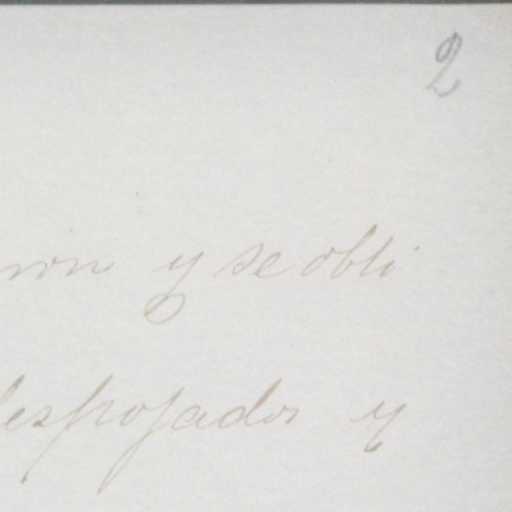 2
y se obli
despojados y